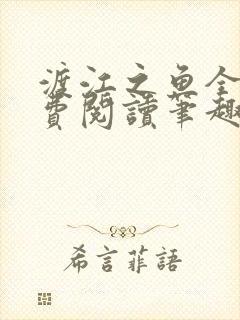 渡江之魚全
費閱讀筆趣
希言菲語